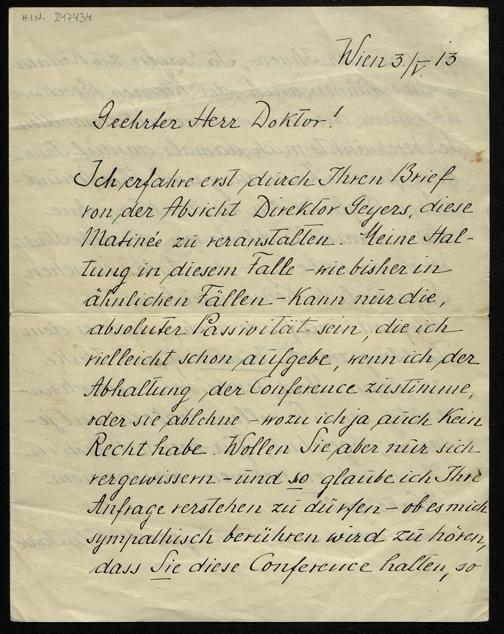 H.I.N. 247434
Wien 3./V. 13
Geehrter Herr Doktor!
Ich erfahre erst durch Ihren Brief
von der Absicht Direktor Geyers, diese
Matinée zu veranstalten. Meine Hal-
tung in diesem Falle – wie bisher in
ähnlichen Fällen – kann nur die,
absoluter Passivität sein, die ich
vielleicht schon aufgebe, wenn ich der
Abhaltung der Conference zustimme,
oder sie ablehne – wozu ich ja auch kein
Recht habe. Wollen Sie aber nur sich
vergewissern – und so glaube ich Ihre
Anfrage verstehen zu dürfen – ob es mich
sympathisch berühren wird zu hören,
dass Sie diese Conference halten, so